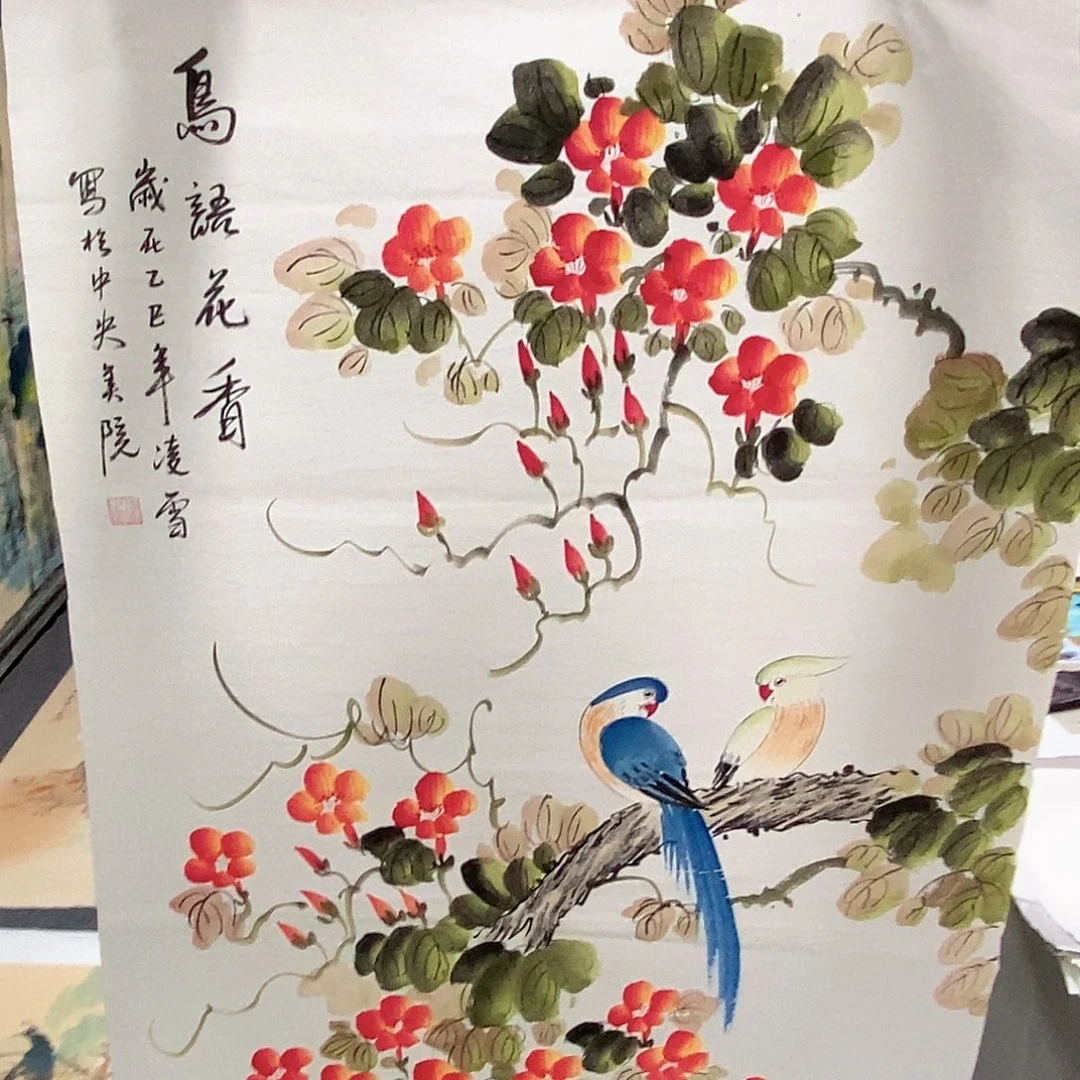 鳥語花香
歲在乙巳年凌雪
寫於中央美院